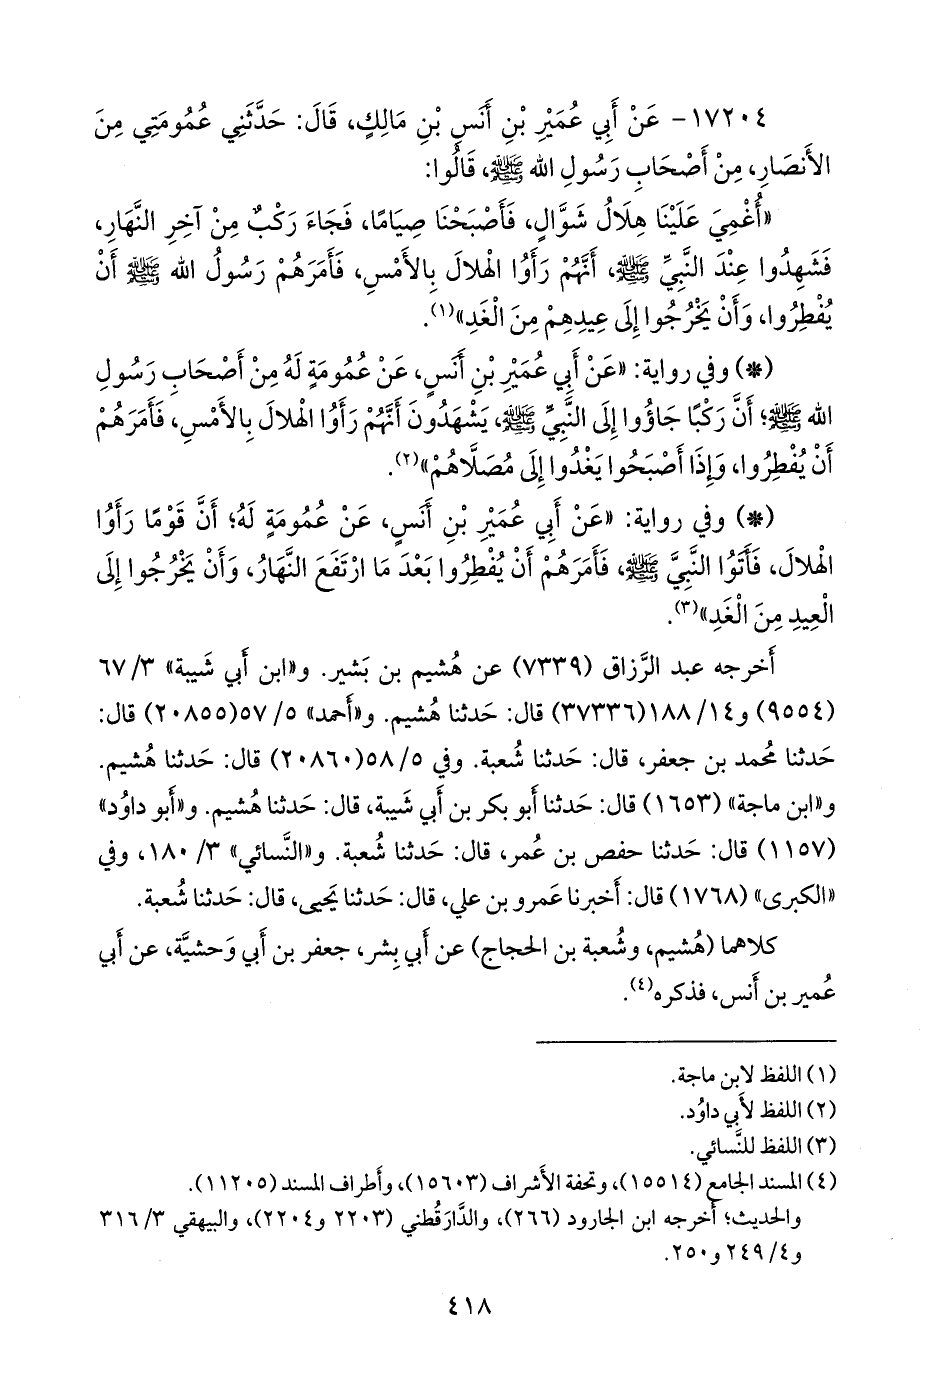 ١٧٢٠٤- عَنْ أَبِي عُمَيْرِ بْنِ أَنَسِ بْنِ مَالِكٍ، قَالَ: حَدَّثَنِي عُمُومَتِي مِنَ
الأَنصَارِ، مِنْ أَصْحَابِ رَسُولِ الله ﷺ، قَالُوا:
«أُغْمِيَ عَلَيْنَا هِلَالُ شَوَّالٍ، فَأَصْبَحْنَا صِيَامًا، فَجَاءَ رَكْبٌ مِنْ آخِرِ النَّهَارِ،
فَشَهِدُوا عِنْدَ النَّبِيِّ ﷺ، أَنَّهُمْ رَأَوُا الْهِلَالَ بِالأَمْسِ، فَأَمَرَهُمْ رَسُولُ الله ﷺ أَنْ
يُفْطِرُوا، وَأَنْ يَخْرُجُوا إِلَى عِيدِهِمْ مِنَ الْغَدِ»(١).
(*) وفي رواية: «عَنْ أَبِي عُمَيْرِ بْنِ أَنَسٍ، عَنْ عُمُومَةٍ لَهُ مِنْ أَصْحَابِ رَسُولِ
الله ﷺ؛ أَنَّ رَكْبًا جَاؤُوا إِلَى النَّبِيِّ ﷺ، يَشْهَدُونَ أَنَّهُمْ رَأَوُا الْهِلَالَ بِالأَمْسِ، فَأَمَرَهُمْ
أَنْ يُفْطِرُوا، وَإِذَا أَصْبَحُوا يَغْدُوا إِلَى مُصَلَّاهُمْ»(٢).
(*) وفي رواية: «عَنْ أَبِي عُمَيْرِ بْنِ أَنَسٍ، عَنْ عُمُومَةٍ لَهُ؛ أَنَّ قَوْمًا رَأَوُا
الْهِلَالَ، فَأَتَوُا النَّبِيَّ ﷺ، فَأَمَرَهُمْ أَنْ يُفْطِرُوا بَعْدَ مَا ارْتَفَعَ النَّهَارُ، وَأَنْ يَخْرُجُوا إِلَى
الْعِيدِ مِنَ الْغَدِ»(٣).
أَخرجه عبد الرَّزاق (٧٣٣٩) عن هُشيم بن بَشير. و«ابن أَبي شَيبة» ٣/ ٦٧
(٩٥٥٤) و١٤/ ١٨٨(٣٧٣٣٦) قال: حَدثنا هُشيم. و«أَحمد» ٥/ ٥٧(٢٠٨٥٥) قال:
حَدثنا مُحمد بن جعفر، قال: حَدثنا شُعبة. وفي ٥/ ٥٨(٢٠٨٦٠) قال: حَدثنا هُشيم.
و«ابن ماجة» (١٦٥٣) قال: حَدثنا أَبو بكر بن أَبي شَيبة، قال: حَدثنا هُشيم. و«أَبو داوُد»
(١١٥٧) قال: حَدثنا حفص بن عُمر، قال: حَدثنا شُعبة. و«النَّسائي» ٣/ ١٨٠، وفي
«الكبرى» (١٧٦٨) قال: أَخبرنا عَمرو بن علي، قال: حَدثنا يَحيى، قال: حَدثنا شُعبة.
كلاهما (هُشيم، وشُعبة بن الحجاج) عن أَبي بِشر، جعفر بن أَبي وَحشيَّة، عن أَبي
عُمير بن أَنس، فذكره(٤).
(١) اللفظ لابن ماجة.
(٢) اللفظ لأَبي داوُد.
(٣) اللفظ للنَّسائي.
(٤) المسند الجامع (١٥٥١٤)، وتحفة الأَشراف (١٥٦٠٣)، وأَطراف المسند (١١٢٠٥).
والحديث؛ أَخرجه ابن الجارود (٢٦٦)، والدَّارَقُطني (٢٢٠٣ و٢٢٠٤)، والبيهقي ٣/ ٣١٦
و٤/ ٢٤٩ و٢٥٠.
٤١٨